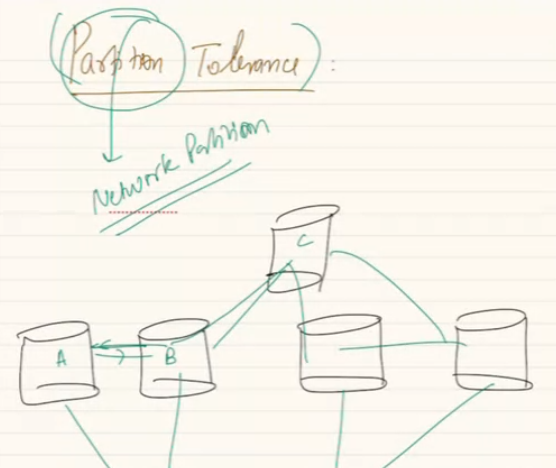 (Partition Tolerance) :
Network Partition
C
A B